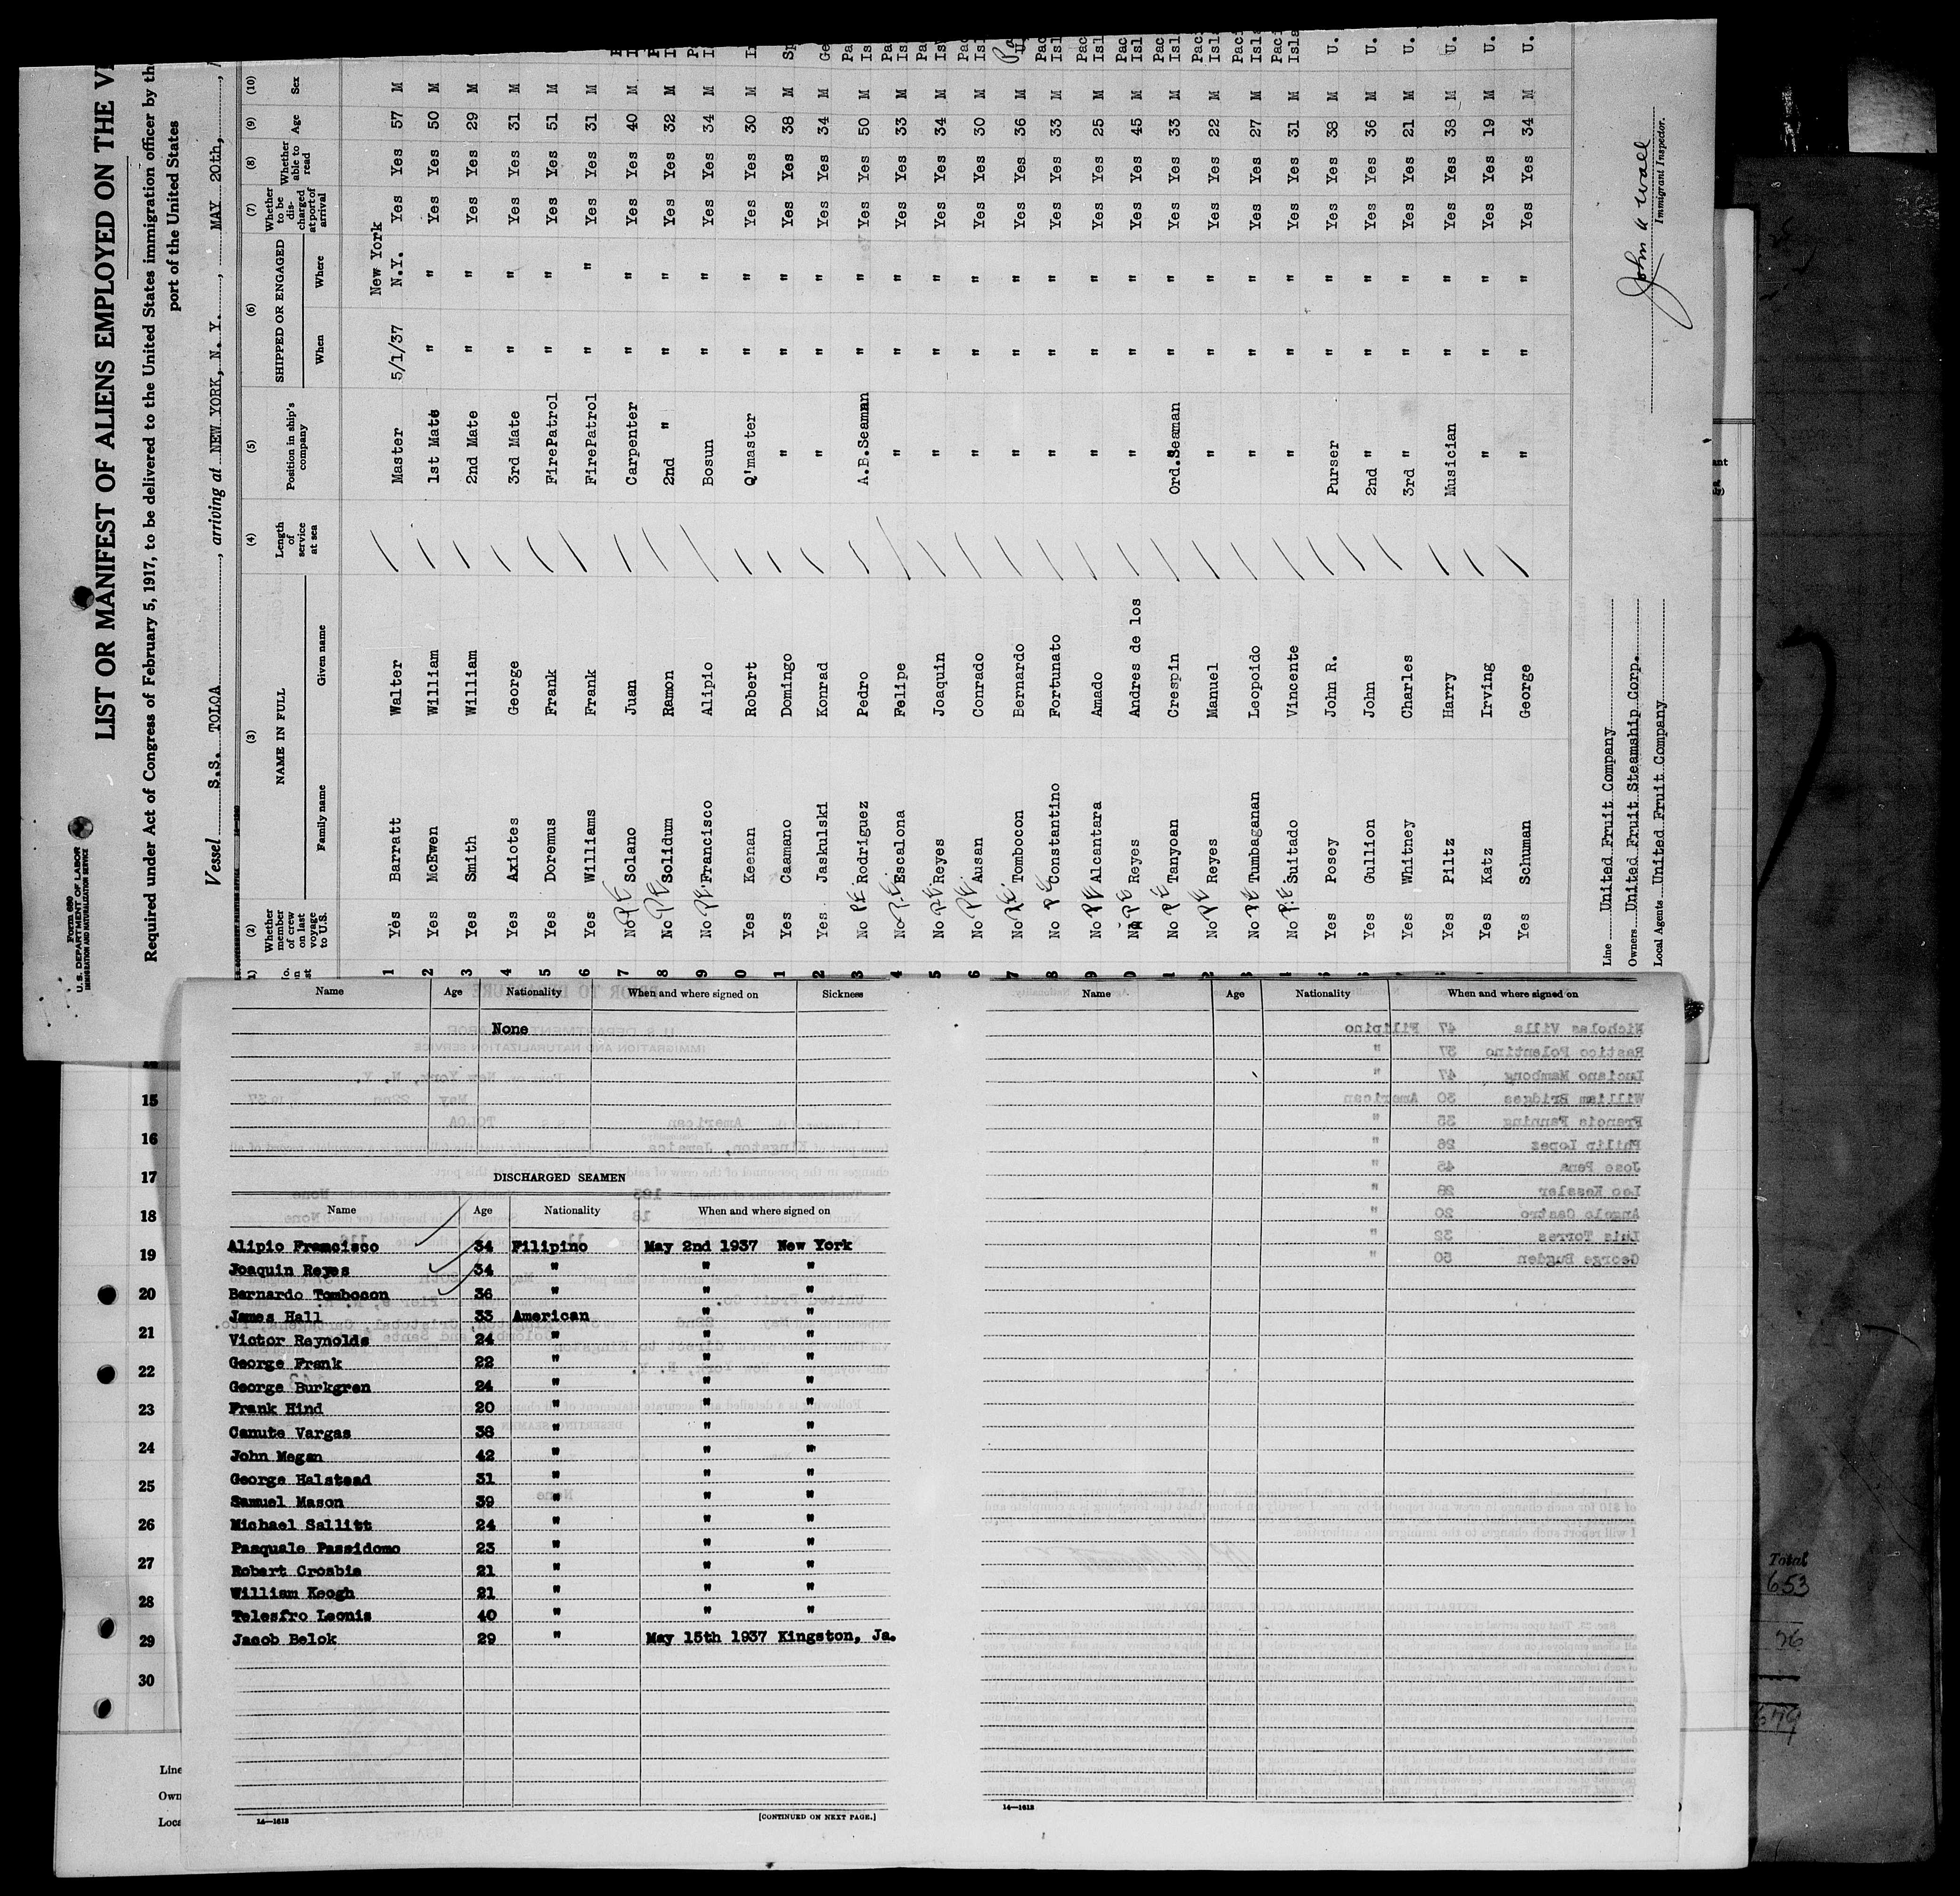 Form 680
U. S. DEPARTMENT OF LABOR
IMMIGRATION AND NATURALIZATION SERVICE
LIST OR MANIFEST OF ALIENS EMPLOYED ON THE
Required under Act of Congress of February 5, 1917, to be delivered to the United States immigration officer by the
port of the United States
Vessel S.S. TOLOA, arriving at NEW YORK, N. Y., MAY 20th,
(2) (3) (4) (5) (6) (7) (8) (9) (10)
Whether member of crew on last voyage to U.S. NAME IN FULL Family name Given name Length of service at sea Position in ship's company SHIPPED OR ENGAGED When Where Whether to be discharged at port of arrival Whether able to read Age Sex
New York
1 Yes Barratt Walter Master 5/1/37 N.Y. Yes Yes 57 M
2 Yes McEwen William 1st Mate " " Yes Yes 50 M
3 Yes Smith William 2nd Mate " " Yes Yes 29 M
4 Yes Axiotes George 3rd Mate " " Yes Yes 31 M
5 Yes Doremus Frank FirePatrol " " Yes Yes 51 M
6 Yes Williams Frank FirePatrol " " Yes Yes 31 M
7 No PE Solano Juan Carpenter " " Yes Yes 40 M
8 No PE Solidum Ramon 2nd " " " Yes Yes 32 M
9 No PE Francisco Alipio Bosun " " Yes Yes 34 M
0 Yes Keenan Robert Q'master " " Yes Yes 30 M
1 Yes Caamano Domingo " " " Yes Yes 38 M
2 Yes Jaskulski Konrad " " " Yes Yes 34 M
3 No PE Rodriguez Pedro A.B.Seaman " " Yes Yes 50 M
4 No PE Escalona Felipe " " " Yes Yes 33 M
5 No PE Reyes Joaquin " " " Yes Yes 34 M
6 No PE Ausan Conrado " " " Yes Yes 30 M
7 No PE Tombocon Bernardo " " " Yes Yes 36 M
8 No PE Constantino Fortunato " " " Yes Yes 33 M
9 No PE Alcantara Amado " " " Yes Yes 25 M
0 No PE Reyes Andres de los " " " Yes Yes 45 M
1 No PE Tanyoan Crespin Ord.Seaman " " Yes Yes 33 M
2 No PE Reyes Manuel " " " Yes Yes 22 M
No PE Tumbaganan Leopoido " " " Yes Yes 27 M
No PE Suitado Vincente " " " Yes Yes 31 M
Yes Posey John R. Purser " " Yes Yes 38 M U.
Yes Gullion John 2nd " " " Yes Yes 36 M U.
Yes Whitney Charles 3rd " " " Yes Yes 21 M U.
Yes Piltz Harry Musician " " Yes Yes 38 M U.
Yes Katz Irving " " " Yes Yes 19 M U.
Yes Schuman George " " " Yes Yes 34 M U.
Line United Fruit Company
Owners United Fruit Steamship Corp.
Local Agents United Fruit Company
John A Wall
Immigrant Inspector.
Name Age Nationality When and where signed on Sickness
None
DISCHARGED SEAMEN
Name Age Nationality When and where signed on
Alipio Francisco 34 Filipino May 2nd 1937 New York
Joaquin Reyes 34 " " "
Bernardo Tombocon 36 " " "
James Hall 33 American " "
Victor Reynolds 24 " " "
George Frank 22 " " "
George Burkgren 24 " " "
Frank Hind 20 " " "
Canute Vargas 38 " " "
John Megan 42 " " "
George Halstead 31 " " "
Samuel Mason 39 " " "
Michael Sallitt 24 " " "
Pasquale Passidomo 23 " " "
Robert Crosbie 21 " " "
William Keogh 21 " " "
Telesfro Leonis 40 " " "
Jacob Belok 29 " May 15th 1937 Kingston, Ja.
14—1613
[CONTINUED ON NEXT PAGE.]
Name Age Nationality When and where signed on
Nicholas Villa 47 Filipino
Rastico Polentino 37 "
Luciano Mambong 47 "
William Bridges 30 American
Francis Fanning 35 "
Philip Lopez 26 "
Jose Pena 45 "
Leo Kessler 28 "
Angelo Castro 20 "
Luis Torres 32 "
George Bugden 50 "
14—1613
15
16
17
18
19
20
21
22
23
24
25
26
27
28
29
30
Line
Own
Loca
Total
653